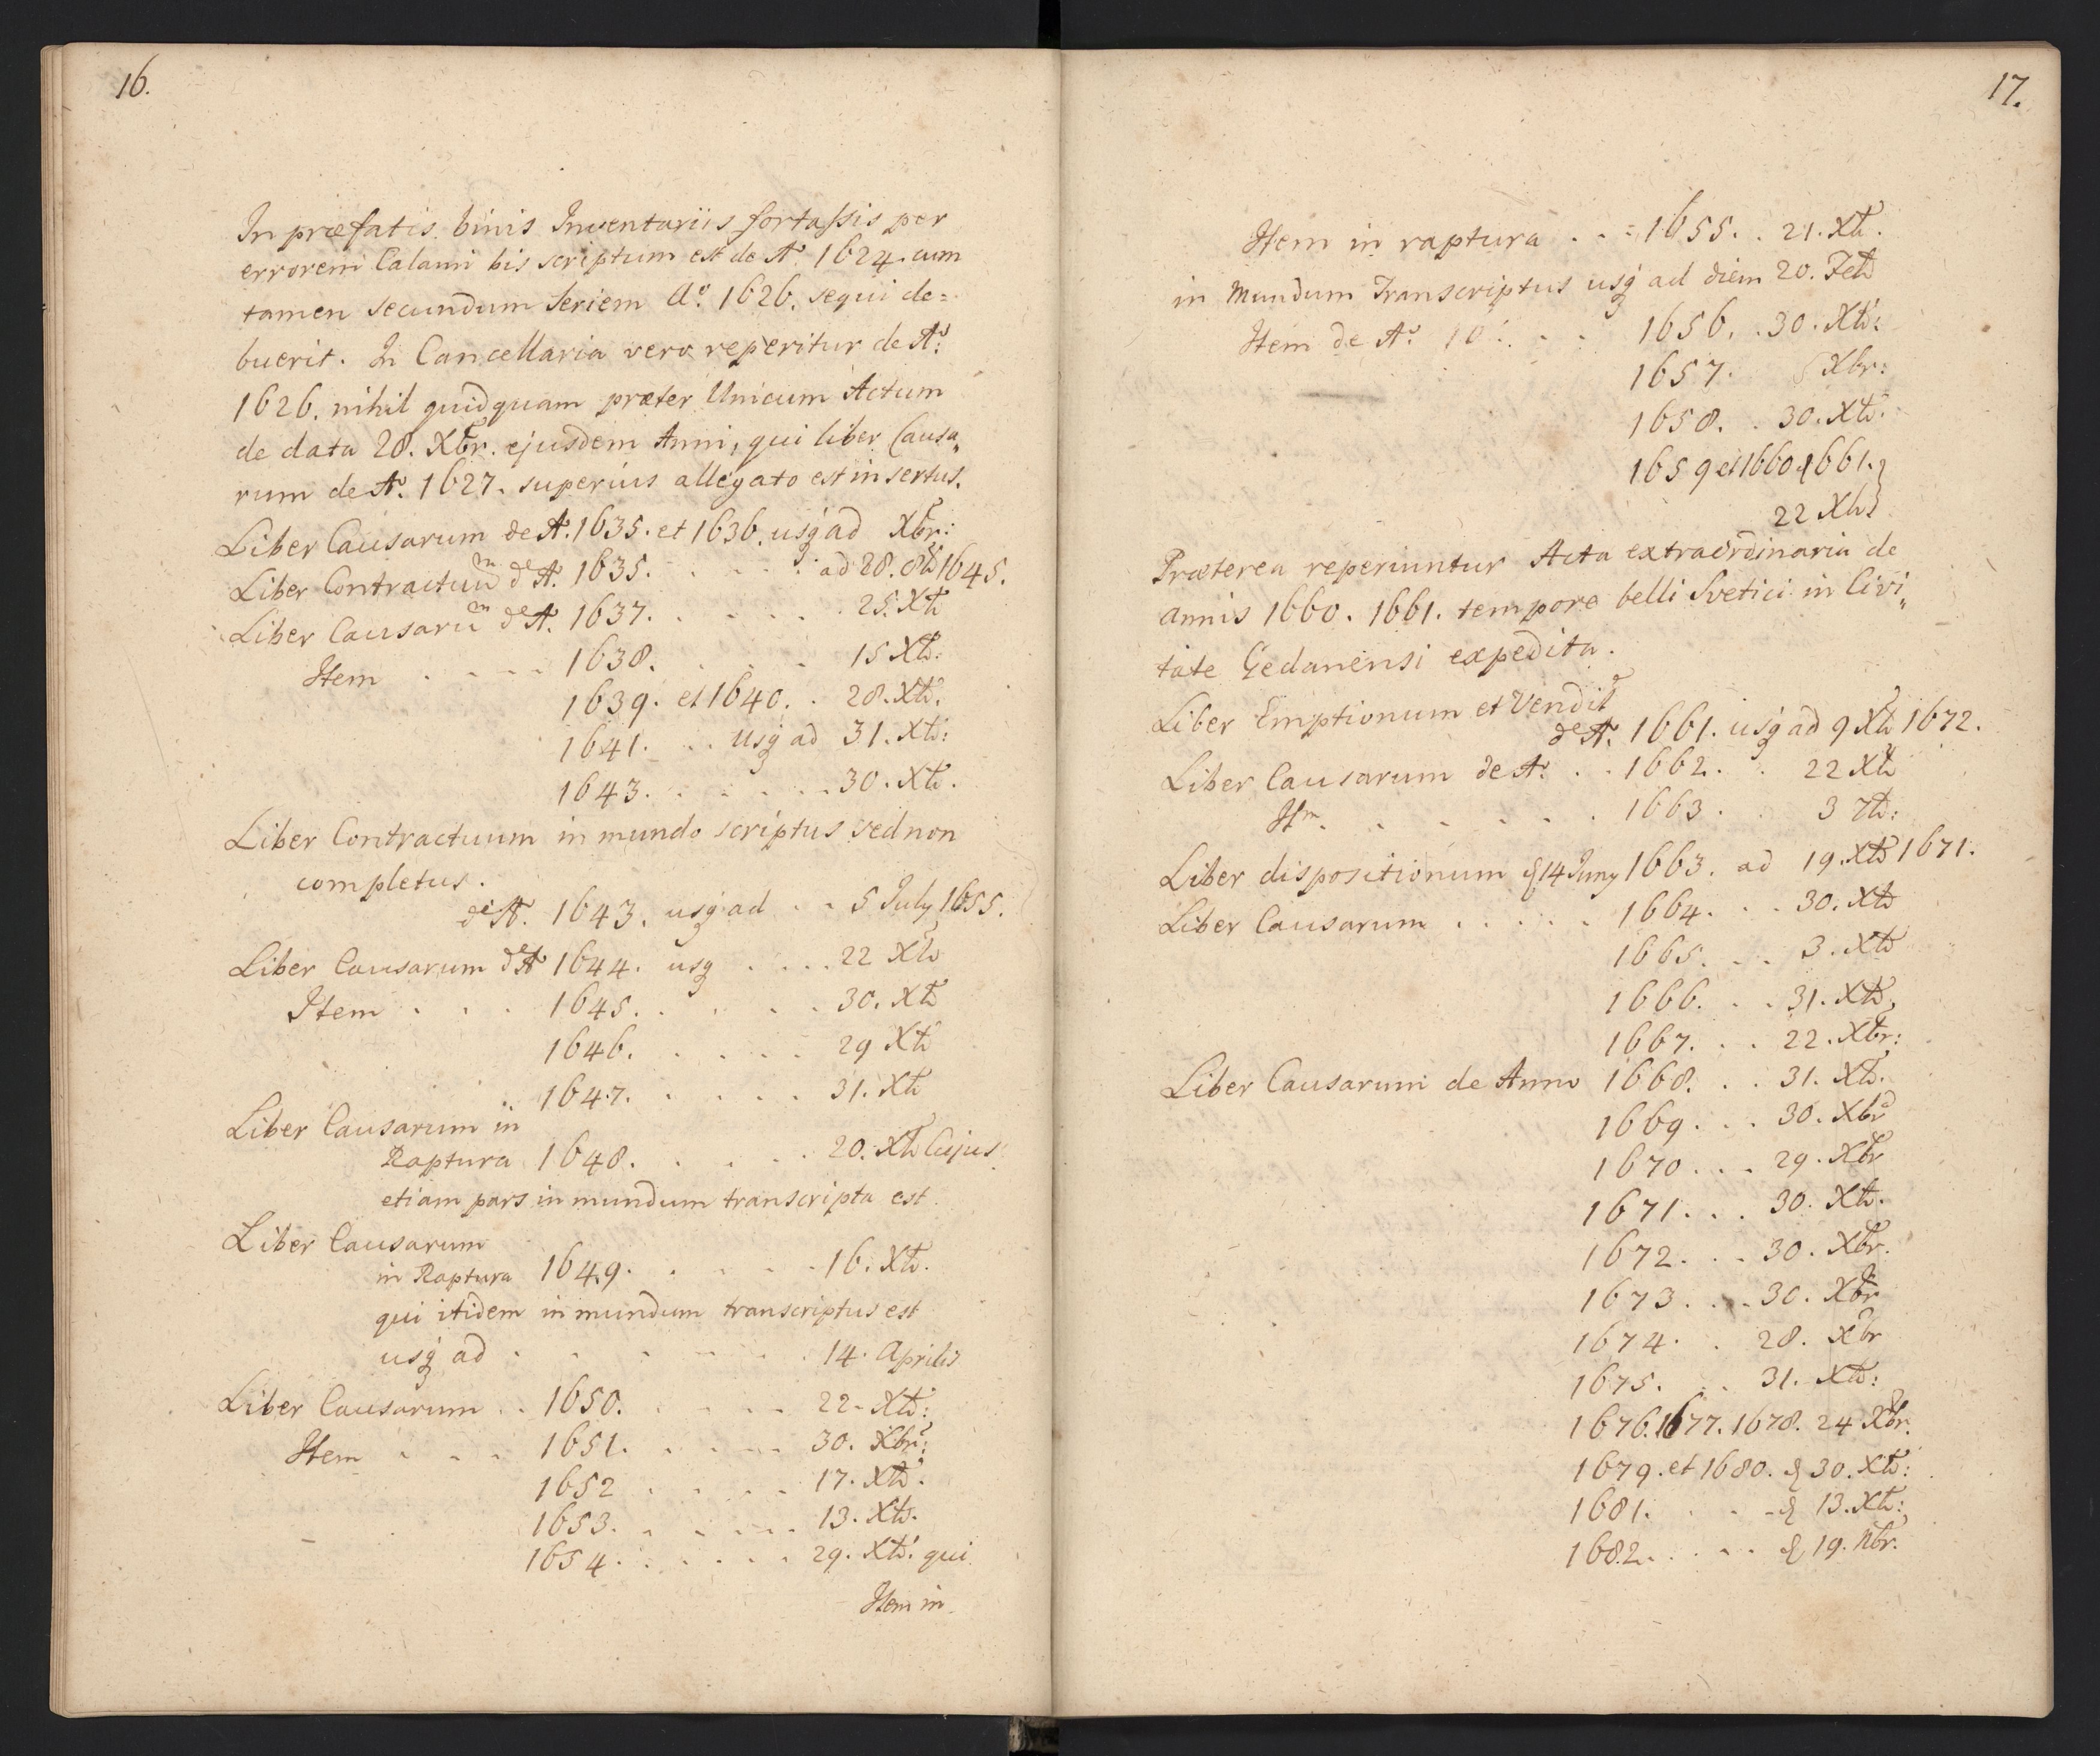 16.
In præfatis binis Inventariis fortassis per
errorem Calami bis scriptum est de Ao. 1624. cum
tamen secundum Seriem Ao. 1626. sequi de=
buerit. In Cancellaria vero reperitur de Ao:
1626. nihil quidquam præter Unicum Actum
de data 28. Xbr. ejusdem Anni, qui liber Causa„
rum de Ao. 1627. superius allegato est insertus.
Liber Causarum de A. 1635. et 1636. usq ad Xbr:
Liber Contractuum de A. 1635. . . . . ad 28. 8b 1645.
Liber Causarum de A. 1637. . . . . . 25. Xb
Item . . . . 1638. . . . . 15 Xb:
1639. et 1640. . 28. Xb.
1641. . . usq ad 31. Xb:
1643. . . . . . 30. Xb.
Liber Contractuum in mundo scriptus sed non
completus.
de A. 1643. usq ad . . 5 July 1655.
Liber Causarum de A 1644. usq . . . . 22 Xb
Item . . . 1645. . . . . . 30. Xb
1646. . . . . . 29 Xb
1647. . . . . . 31. Xb
Liber Causarum in
Raptura 1648. . . . . . 20. Xb Cujus
etiam pars in mundum transcripta est.
Liber Causarum
in Raptura 1649. . . . . . 16. Xb.
qui itidem in mundum transcriptus est
usq ad . . . . . . 14. Aprilis
Liber Causarum . . 1650. . . . . . 22. Xb:
Item . . . 1651. . . . . . 30. Xbr:
1652 . . . . . 17. Xb.
1653. . . . . . 13. Xb.
1654. . . . . . 29. Xb: qui
Item in
17.
Item in raptura . . . 1655. . 21. Xb.
in Mundum Transcriptus usq ad diem 20. Feb
Item de Ao. 10 . . . 1656. . 30. Xb:
1657. Xbr:
1658. . 30. Xb.
1659 et 1660 1661.
22 Xb
Præterea reperiuntur Acta extraordinaria de
annis 1660. 1661. tempore belli Svetici in Civi„
tate Gedanensi expedita.
Liber Emptionum et Vendit
de A. 1661. usq ad 9 Xb 1672.
Liber Causarum de Ao. . . 1662. . 22 Xb
Itm. . . . . . . 1663. . 3 7b:
Liber dispositionum 14 Juny 1663. ad 19. Xb 1671.
Liber Causarum . . . . . 1664. . . 30. Xb
1665. . . 3. Xb
1666. . . 31. Xb.
1667. . . 22. Xbr:
Liber Causarum de Anno 1668. . . 31. Xb.
1669. . . 30. Xbr
1670. . . 29. Xbr
1671. . . 30. Xb.
1672. . . 30. Xbr.
1673. . . 30. Xbr
1674. . 28. Xbr
1675. . . 31. Xb:
1676. 1677. 1678. 24 Xbr.
1679. et 1680. 30. Xb:
1681. . . . 13. Xb:
1682. . . . . 19. Nbr.